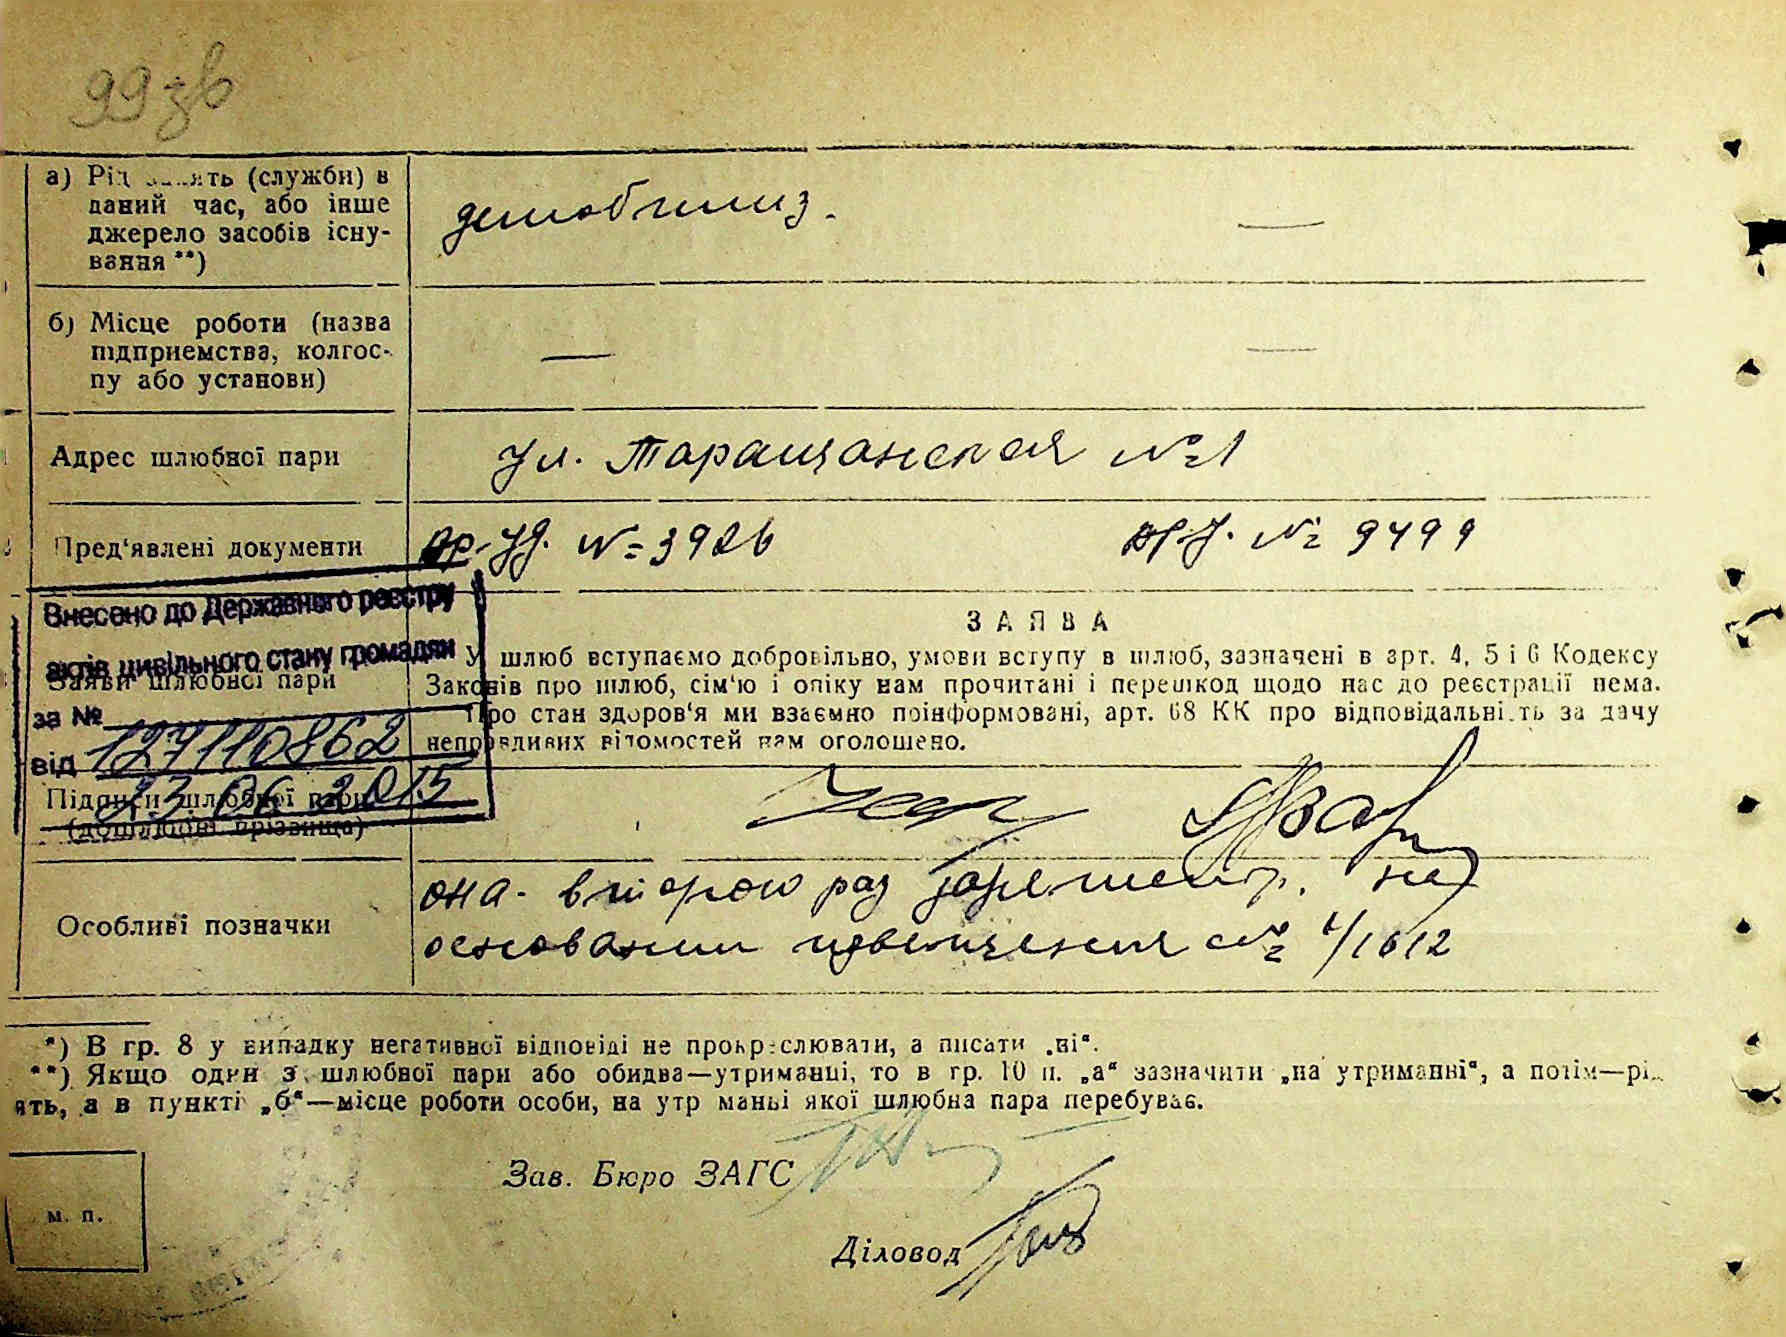 99 зв
а) Рід занять (служби) в
даний час, або інше
джерело засобів існу-
вання **)
демобилиз. —
б) Місце роботи (назва
підприємства, колгос-
пу або установи)
— —
Адрес шлюбної пари
ул. Таращанская №1
Пред'явлені документи
вр. уд. № 3926 вр. у. № 9499
Внесено до Державного реєстру
актів цивільного стану громадян
за № 127110862
від 23 06 2015
Заяви шлюбної пари
ЗАЯВА
У шлюб вступаємо добровільно, умови вступу в шлюб, зазначені в арт. 4, 5 і 6 Кодексу
Законів про шлюб, сім'ю і опіку нам прочитані і перешкод щодо нас до реєстрації нема.
Про стан здоров'я ми взаємно поінформовані, арт. 68 КК про відповідальність за дачу
неправдивих відомостей нам оголошено.
Підписи шлюбної пари
(дошлюбні прізвища)
Особливі позначки
она - второю раз зарегистр. на
основании извещения № 1/1612
*) В гр. 8 у випадку негативної відповіді не прокреслювати, а писати „ні“.
**) Якщо один з шлюбної пари або обидва—утриманці, то в гр. 10 п. „а“ зазначити „на утриманні“, а потім—рі
ять, а в пункті „б“—місце роботи особи, на утр манні якої шлюбна пара перебуває.
Зав. Бюро ЗАГС
м. п.
Діловод